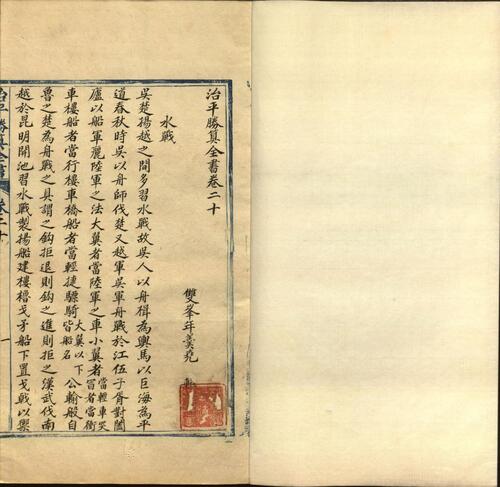 治平勝算全書卷二十
雙峯年羹堯
水戰
吳楚揚越之間多習水戰故吳人以舟楫為輿馬以巨海為平
道春秋時吳以舟師伐楚又越軍吳軍舟戰於江伍子胥對闔
廬以船軍麗陸軍之法大翼者當陸軍之車小翼者當輕車突冒者當衝
車樓船者當行樓車橋船者當輕捷驃騎大翼以下皆船名公輸般自
魯之楚為舟戰之具謂之鈎拒退則鈎之進則拒之漢武伐南
越於昆明開池習水戰製揚船建樓櫓戈矛船下置戈戟以禦
治平勝算全書 卷二十 一